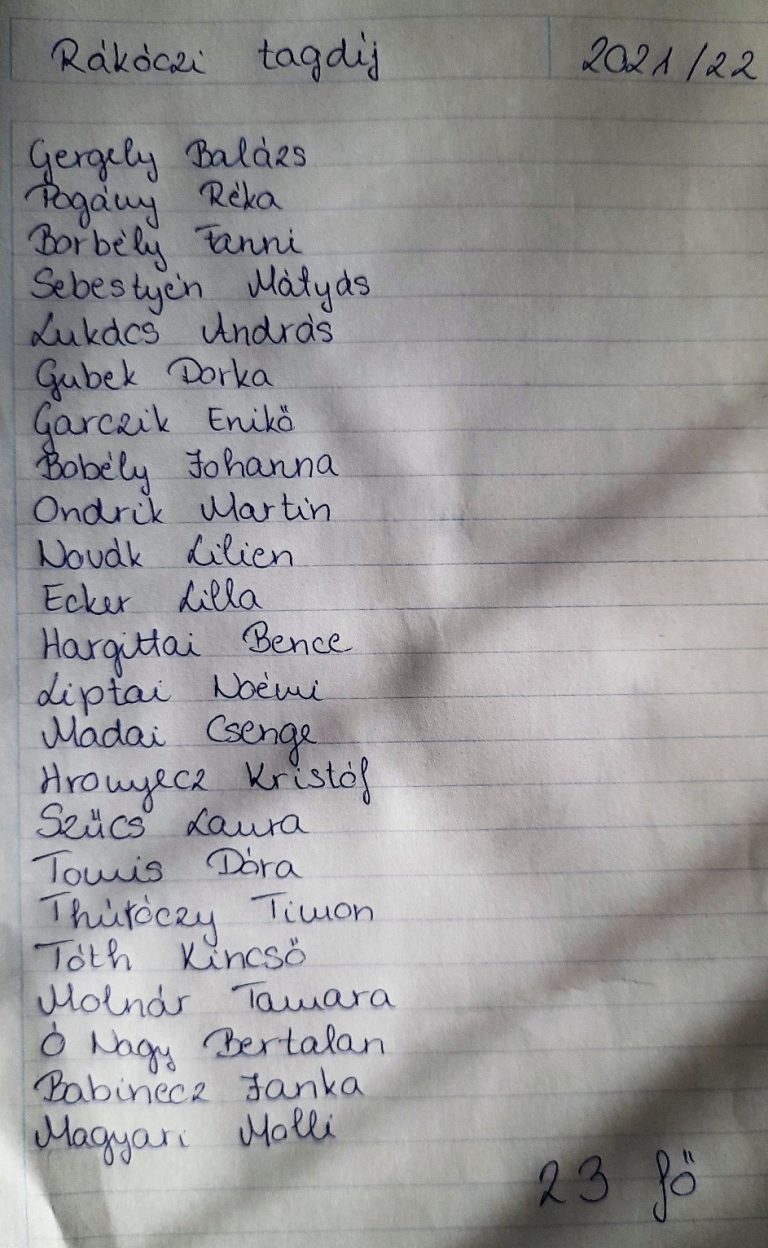 Rákóczi tagdíj 2021/22
Gergely Balázs
Pogány Réka
Borbély Fanni
Sebestyén Mátyás
Lukács András
Gubek Dorka
Garczik Enikő
Bobély Johanna
Ondrik Martin
Novák Lilien
Ecker Lilla
Hargittai Bence
Liptai Noémi
Madai Csenge
Hronyecz Kristóf
Szűcs Laura
Tomis Dóra
Thúróczy Timon
Tóth Kincső
Molnár Tamara
Ó Nagy Bertalan
Babinecz Janka
Magyari Molli
23 fő